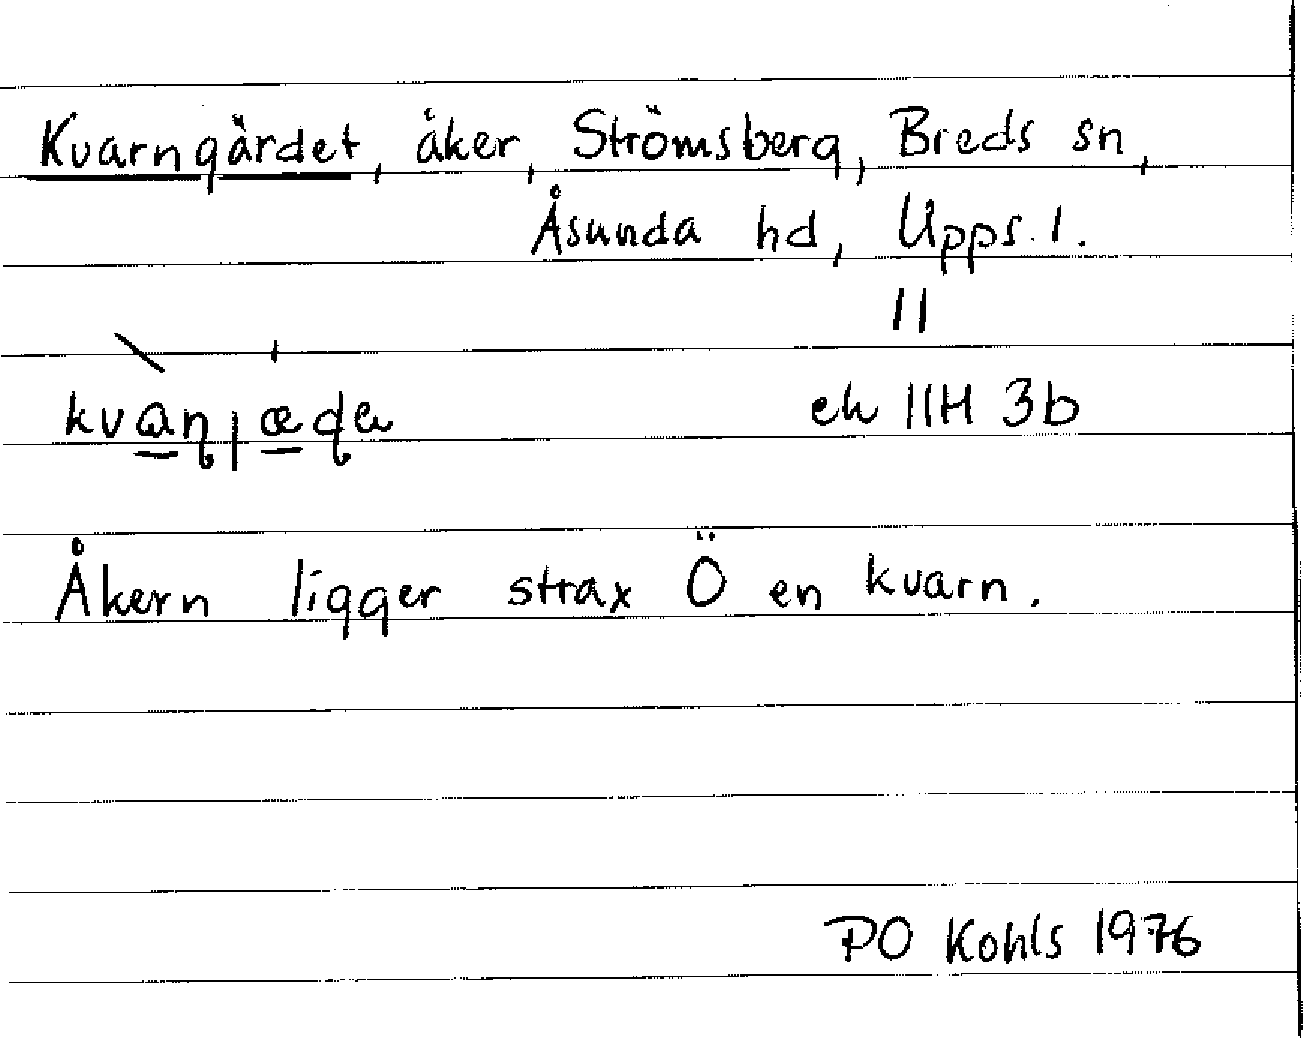 Kvarngärdet, åker, Strömsberg, Breds sn,
Åsunda hd, Upps. l.
11
kvaɳ|æɖa ek 11H 3b
Åkern ligger strax Ö en kvarn.
PO Kohls 1976